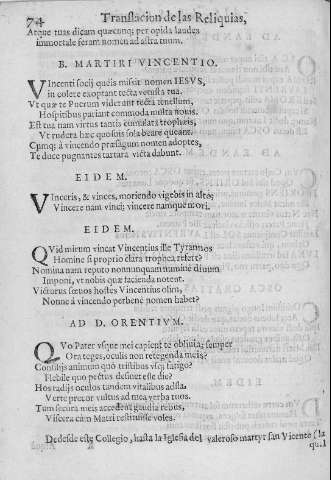 74 Translacion de las Reliquias,
Atque tuas dicam quæcunq; per opida laudes
immortale feram nomen ad astra tuum.
B. MARTIRI VINCENTIO.
VIncenti socij quéis misit nomen IESVS,
in colere exoptant tecta vetusta tua.
Vt quæ te Puerum viderunt tecta tenellum,
Hospitibus pariant commoda multa nouis.
Est tua nam virtus tantis cumulata trophæis,
Vt rudeta hæc quosuis sola beare queant.
Cumq; à vincendo præsagum nomen adoptes,
Te duce pugnantes tartara victa dabunt.
EIDEM.
VInceris, & vinces, moriendo vigebis in alto;
Vincere nam vinci; vincere namque mori.
EIDEM.
QVid mirum vincat Vincentius ille Tyrannos
Homine si proprio clara trophea refert?
Nomina nam reputo nonnunquam numine diuum
Imponi, vt nobis quæ facienda notent.
Victurus sæuos hostes Vincentius olim,
Nonne à vincendo perbene nomen habet?
AD D. ORENTIVM.
QVo Pater vsque mei capient te obliuia; semper
Ora teges, oculis non retegenda meis?
Consilijs animum quo tristibus vsq; fatigo?
Flebile quo pectus desinet esse die?
Hos radijs oculos tandem vitalibus adfla,
Verte precor vultus ad mea verba tuos.
Tum secura meis accedent gaudia rebus,
Viscera cum Matri restituisse voles.
Desde este Collegio, hasta la Iglesia del valeroso martyr san Vicente (la
qual